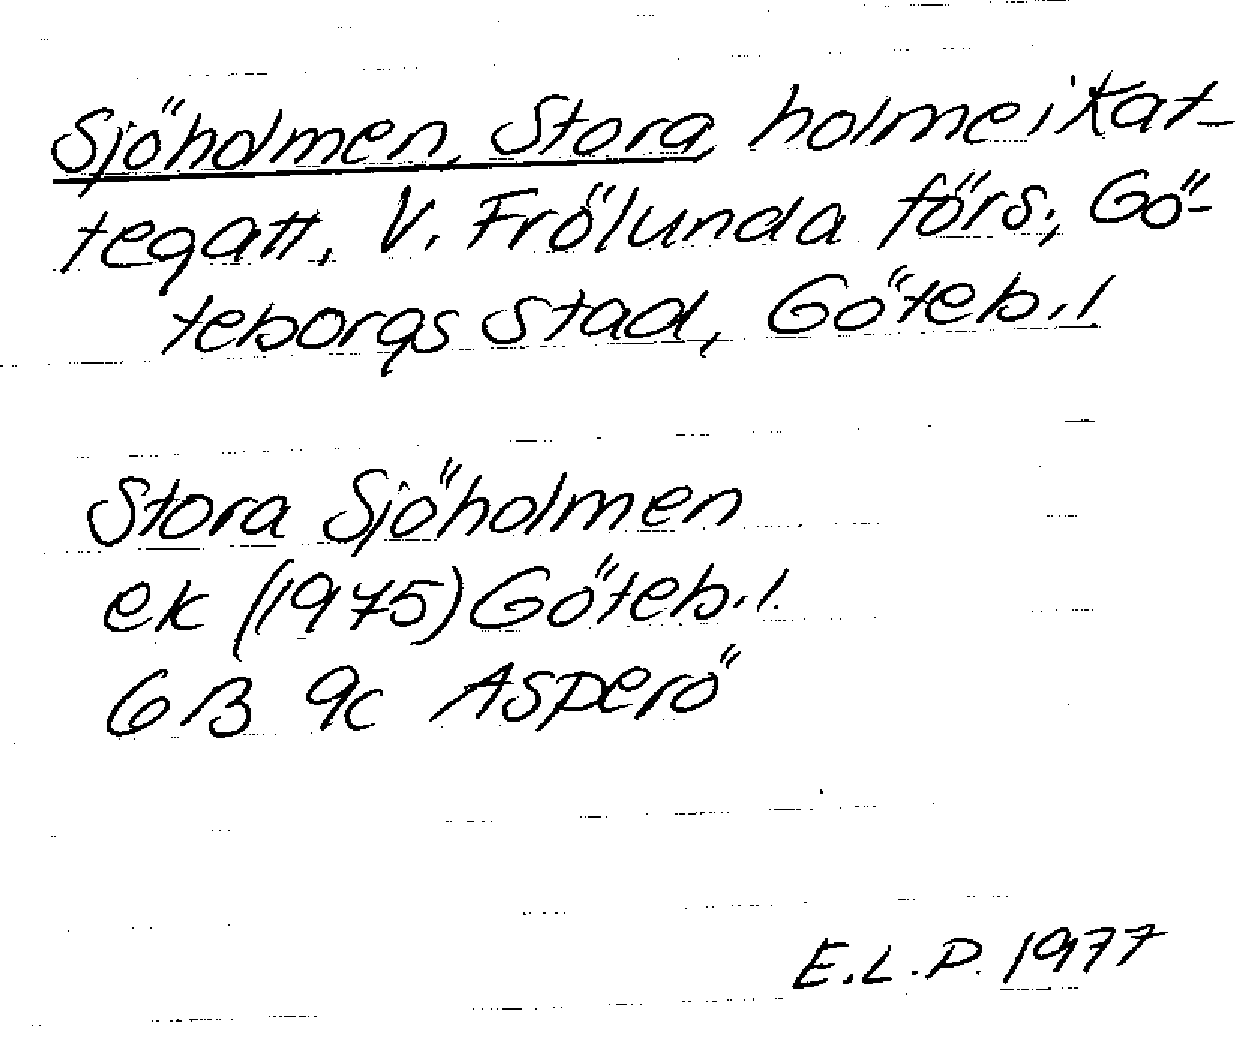 Sjöholmen, Stora, holme i Kat-
tegatt, V. Frölunda förs., Gö-
teborgs stad, Göteb. l
Stora Sjöholmen
ek (1975) Göteb. l.
6B 9c Asperö
E.L.P. 1977